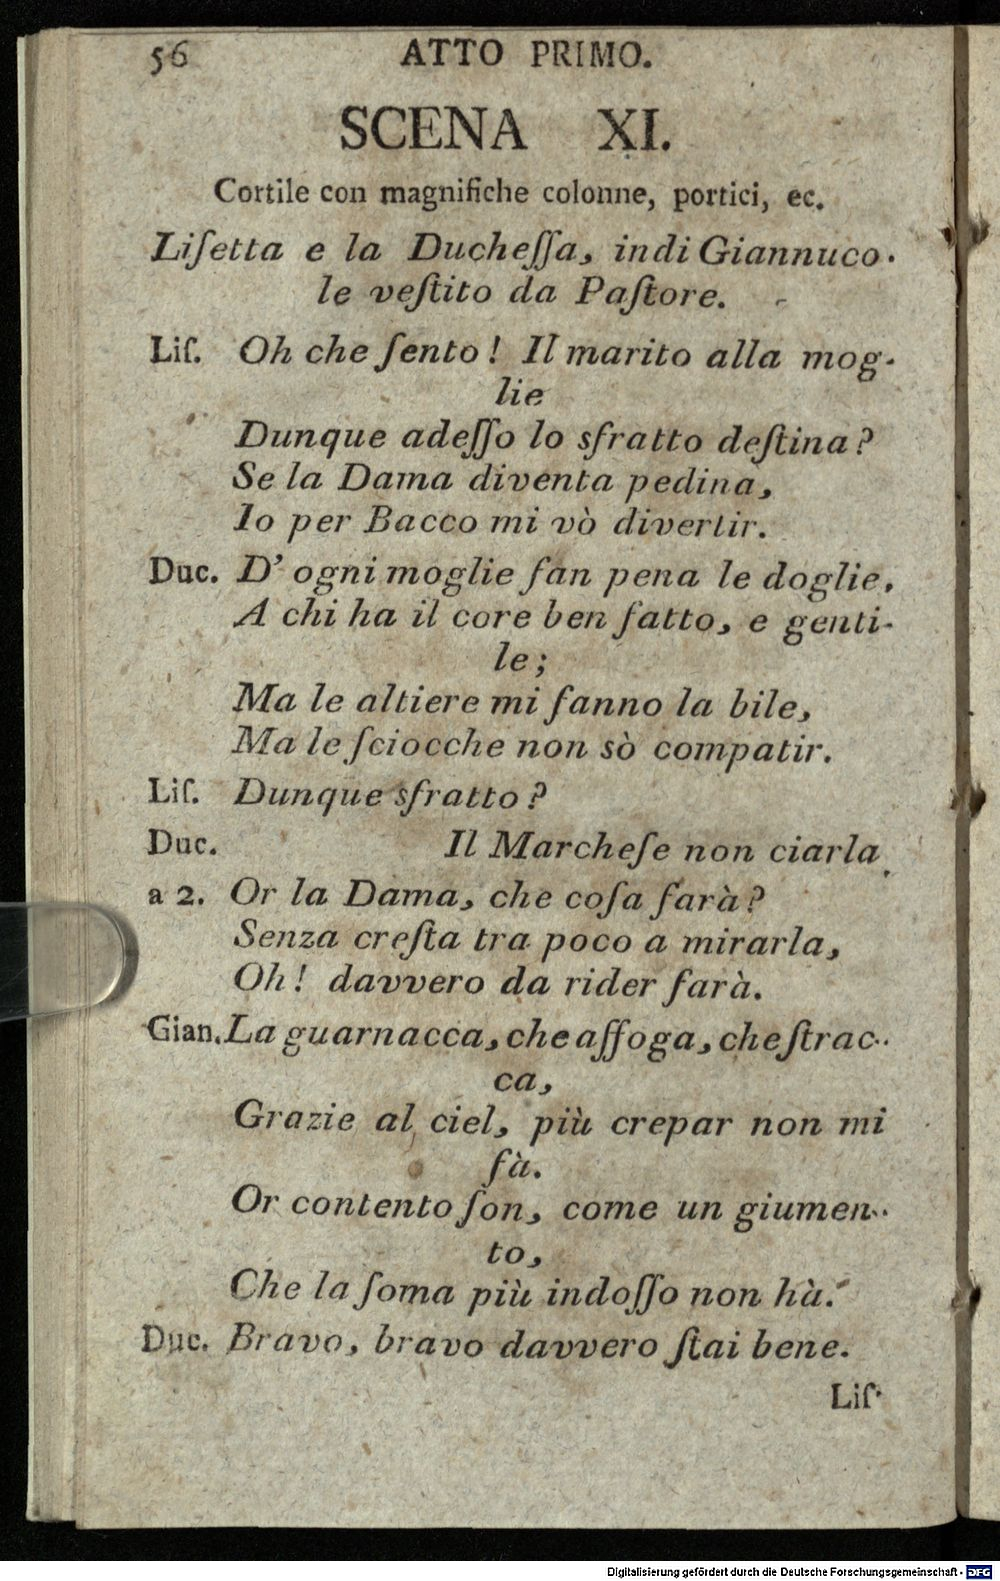 56 ATTO PRIMO.
SCENA XI.
Cortile con magnifiche colonne, portici, ec.
Liſetta e la Ducheſſa, indi Giannuco-
le veſtito da Paſtore.
Liſ. Oh che ſento! Il marito alla mog-
lie
Dunque adeſſo lo sfratto deſtina?
Se la Dama diventa pedina,
Io per Bacco mi vò divertir.
Duc. D' ogni moglie fan pena le doglie,
A chi ha il core ben fatto, e genti-
le;
Ma le altiere mi fanno la bile,
Ma le ſciocche non sò compatir.
Liſ. Dunque sfratto?
Duc. Il Marcheſe non ciarla.
a 2. Or la Dama, che coſa farà?
Senza creſta tra poco a mirarla,
Oh! davvero da rider farà.
Gian. La guarnacca, che affoga, che ſtrac-
ca,
Grazie al ciel, più crepar non mi
fà.
Or contento ſon, come un giumen-
to,
Che la ſoma più indoſſo non hà.
Duc. Bravo, bravo davvero ſtai bene.
Liſ.
Digitalisierung gefördert durch die Deutsche Forschungsgemeinschaft - DFG